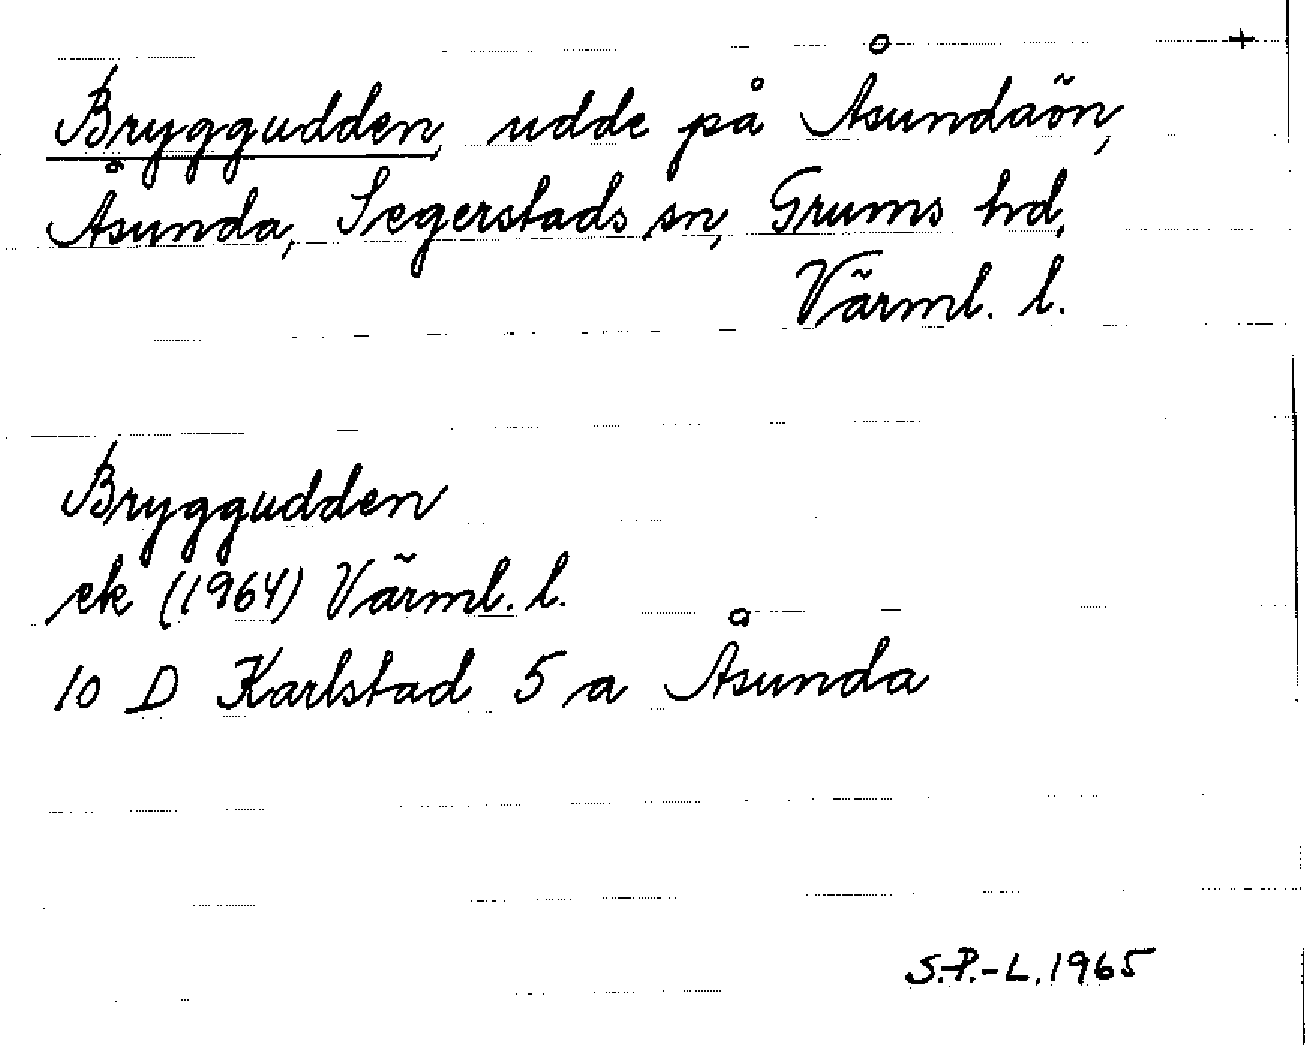 +
Bryggudden, udde på Åsundaön,
Åsunda, Segerstads sn, Grums hd,
Värml. l.
Bryggudden
ek (1964) Värml. l.
10 D Karlstad 5 a Åsunda
S.P.-L. 1965